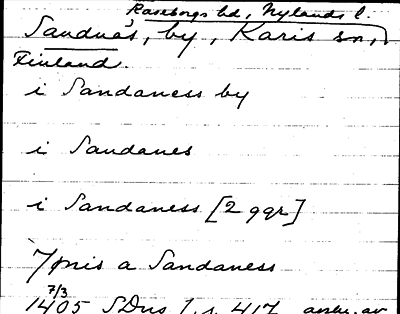 Raseborgs hd, Nylands l.
Sandnäs, by, Karis sn,
Finland.
i Sandaness by
i Sandanes
i Sandaness [2 ggr]
a Sandaness
7/3
1405 SDns 1, s. 417